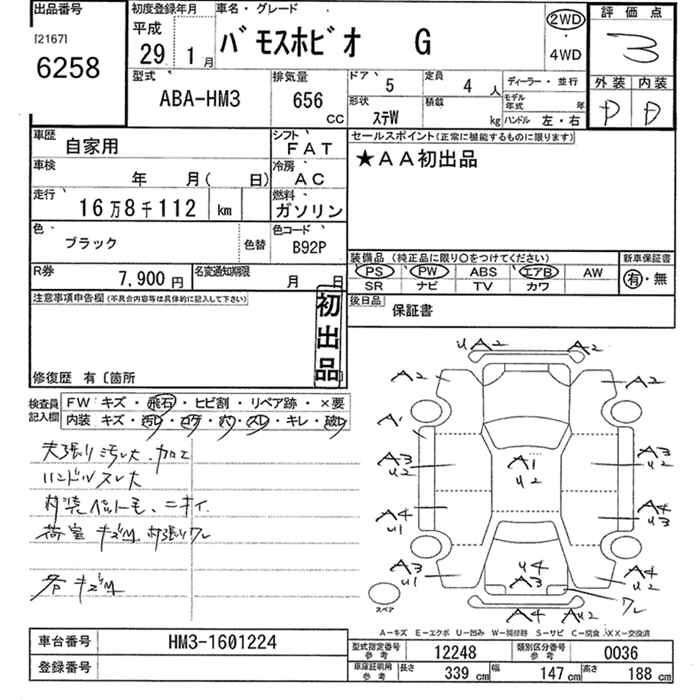 出品番号
[2167]
6258
初度登録年月
平成
29 1月
車名・グレード
バモスホビオ G
2WD
・
4WD
評価点
3
外装 内装
D D
型式
ABA-HM3
排気量
656
CC
ドア 5
定員 4 人
形状 ステW
積載 kg
ディーラー・並行
モデル年式 年
ハンドル 左・右
車歴 自家用
シフト FAT
車検 年 月( 日)
冷房 AC
走行 16万8千112 km
燃料 ガソリン
色 ブラック
色替
色コード B92P
R券 7,900円
名変通知期限 月 日
セールスポイント(正常に機能するものに限ります)
★AA初出品
装備品 (純正品に限り○をつけてください)
新車保証書
PS PW ABS エアB AW
SR ナビ TV カワ
有・無
後日品
保証書
注意事項申告欄(不具合内容等は具体的に記入して下さい)
初出品
修復歴 有〔箇所
検査員記入欄
FW キズ・飛石・ヒビ割・リペア跡・×要
内装 キズ・汚レ・コゲ・穴・スレ・キレ・破レ
天張り汚レ大・加工
ハンドルスレ大
内装ペット毛、ニオイ
荷室キズ凹 内張りワレ
各キズ凹
uA2 A2
A2 A2
A1
A3 u2
A1 u2
A3 u2
A4 u1
A4 u3
A3 u1
u4 A3
A4 u2
ワレ
A4 Au2
スペア
A-キズ E-エクボ U-凹み W-補修跡 S-サビ C-腐食 XX-交換済
車台番号 HM3-1601224
登録番号
型式指定番号 参考 12248
類別区分番号 参考 0036
車庫証明用 参考 長さ 339 cm 幅 147 cm 高さ 188 cm